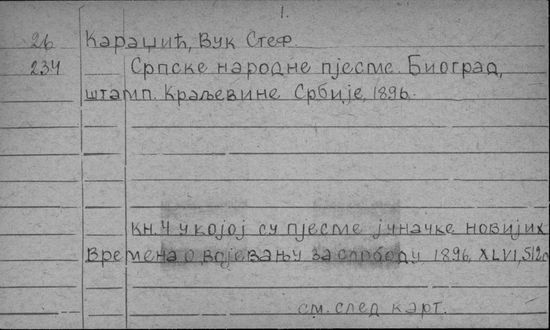 1.
26 Караџић, Вук Стеф.
234 Српске народне пјесме. Биоград,
штамп. Краљевине Србије, 1896.
кн. 4 у којој су пјесме јуначке новијих
времена о војевању за слободу 1896, XLVI, 512с
см. след карт.